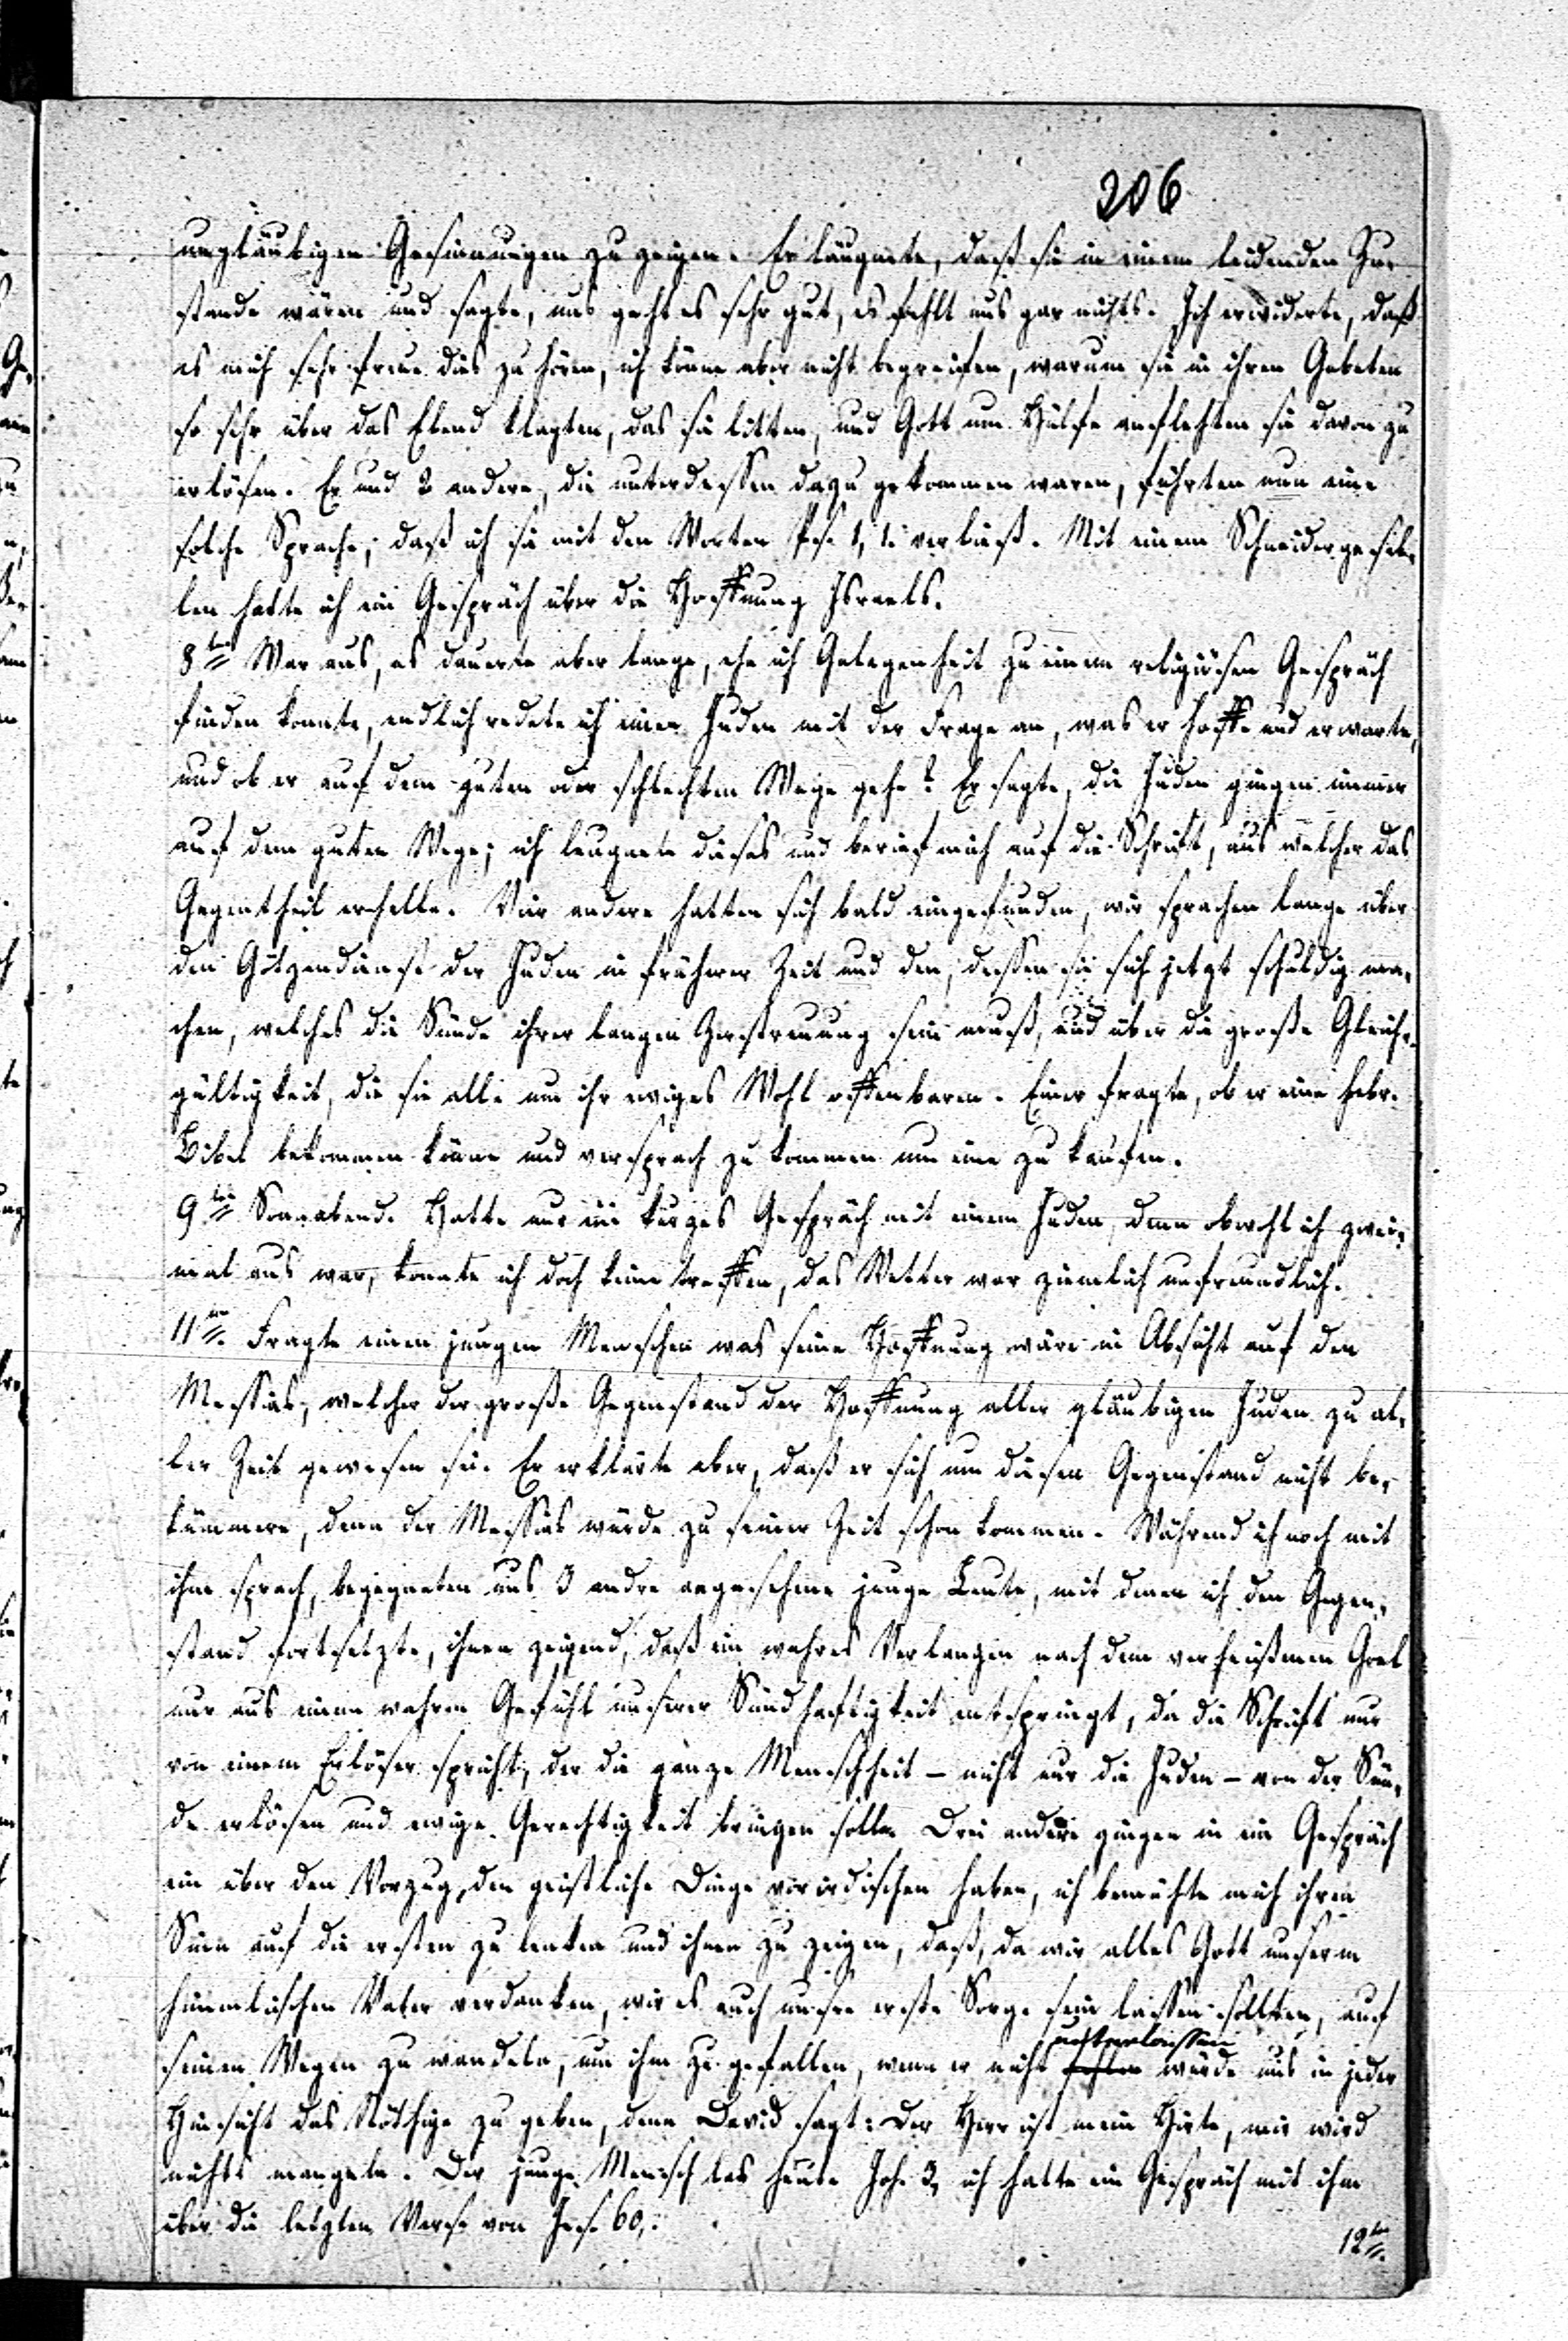 206
ungläubigen Gesinnungen zu zeigen. Er läugnete, daß sie in einem leidenden Zu-
stande wären und sagte, uns geht es sehr gut, es fehlt uns gar nichts. Ich erwiderte, daß
es mich sehr freue dies zu hören, ich könne aber nicht begreifen, warum sie in ihren Gebeten
so sehr über das Elend klagten, das sie litten, und Gott um Hülfe anflehten sie davon zu
erlösen. Er und 2 andere, die unterdessen dazu gekommen waren, führten nun eine
solche Sprache, daß ich sie mit den Worten Ps. 1, 1. verließ. Mit einem Schneidergesel-
len hatte ich ein Gespräch über die Hoffnung Israels.
8ten War aus, es dauerte aber lange, ehe ich Gelegenheit zu einem religiösen Gespräch
finden konnte, endlich redete ich einen Juden mit der Frage an, was er hoffe und erwarte,
und ob er auf dem guten oder schlechten Wege gehe? Er sagte, die Juden gingen immer
auf dem guten Wege; ich leugnete dieses und berief mich auf die Schrift, aus welcher das
Gegentheil erhelle. Vier andere hatten sich bald eingefunden, wir sprachen lange über
den Götzendienst der Juden in früherer Zeit und den, dessen sie sich jetzt schuldig ma-
chen, welches die Sünde ihrer langen Zerstreuung sein muß, und über die große Gleich-
gültigkeit, die sie alle um ihr ewiges Wohl offenbaren. Einer fragte, ob er eine hebr.
Bibel bekommen könne und versprach zu kommen um eine zu kaufen.
9ten Sonnabend. Hatte nur ein kurzes Gespräch mit einem Juden, denn obwohl ich zwei-
mal aus war, konnte ich doch keine treffen, das Wetter war ziemlich unfreundlich.
11ten. Fragte einen jungen Menschen was seine Hoffnung wäre in Absicht auf den
Messias, welcher der große Gegenstand der Hoffnung aller gläubigen Juden zu al-
ler Zeit gewesen sei. Er erklärte aber, daß er sich um diesen Gegenstand nicht be-
kümmere, denn der Messias würde zu seiner Zeit schon kommen. Während ich noch mit
ihm sprach, begegneten uns 3 andre angesehene junge Leute, mit denen ich den Gegen-
stand fortsetzte, ihnen zeigend, daß ein wahres Verlangen nach dem verheißenen Goel
nur aus einem wahren Gefühl unserer Sündhaftigkeit entspringt, da die Schrift nur
von einem Erlöser spricht, der die ganze Menschheit – nicht nur die Juden – von der Sün-
de erlösen und ewige Gerechtigkeit bringen solle. Drei andere gingen in ein Gespräch
ein über den Vorzug, den geistliche Dinge vor irdischen haben, ich bemühte mich ihren
Sinn auf die ersten zu lenken und ihnen zu zeigen, daß, da wir alles Gott unserm
himmlischen Vater verdanken, wir es auch unsre erste Sorge sein lassen sollten, auf
seinen Wegen zu wandeln, um ihm zu gefallen, wenn er nicht fehlen unterlassen würde uns in jeder
Hinsicht das Nöthige zu geben, denn David sagt: Der Herr ist mein Hirte, mir wird
nichts mangeln. Der junge Mensch las heute Joh. 3, ich hatte ein Gespräch mit ihm
über die letzten Verse von Jes. 60.
12ten.